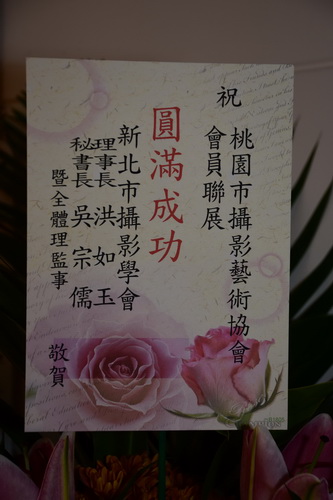 祝
桃園市攝影藝術協會
會員聯展
圓滿成功
新北市攝影學會
理事長 洪如玉
秘書長 吳宗儒
暨全體理監事
敬賀